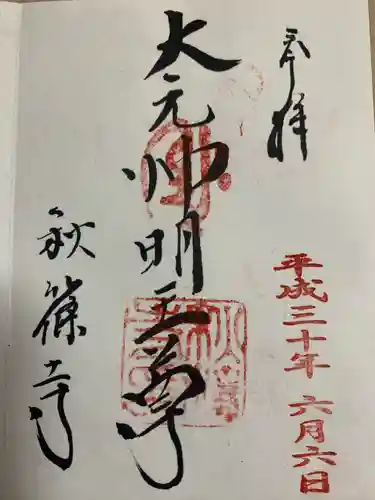 奉拝
平成三十年 六月六日
大元帅明王尊
秋篠寺